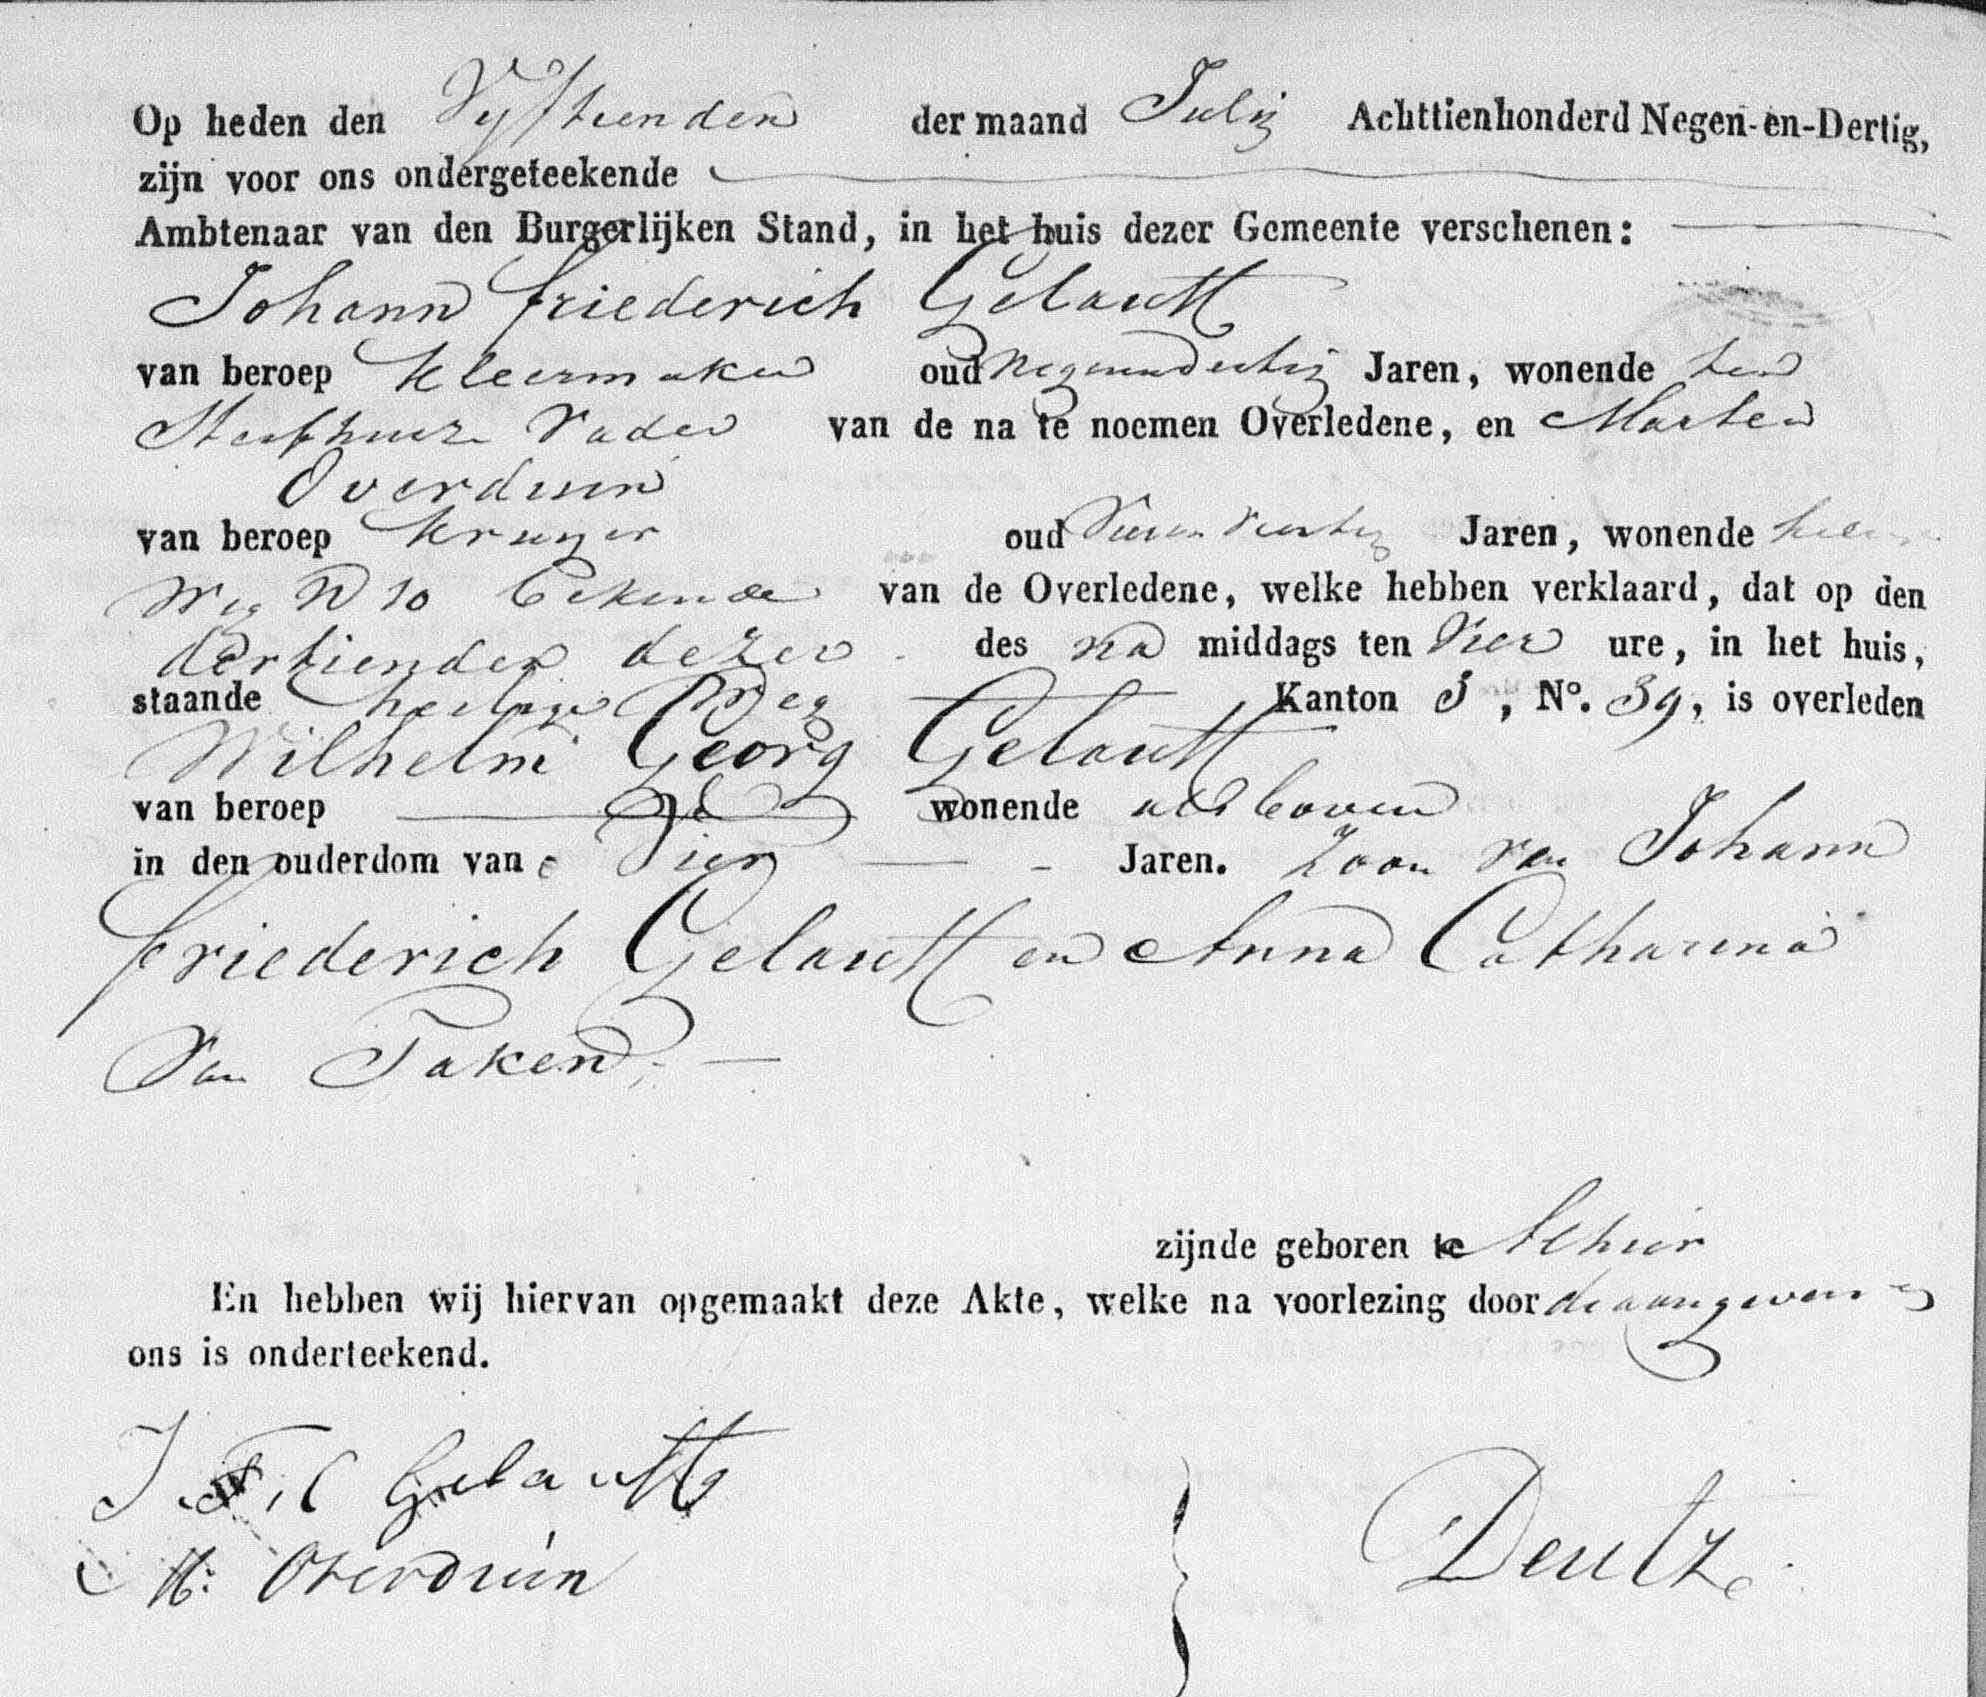 Op heden den Vyftienden der maand Julij Achttienhonderd Negen-en-Dertig,
zijn voor ons ondergeteekende
Ambtenaar van den Burgerlijken Stand, in het huis dezer Gemeente verschenen:
Johann Friederich Gelautt
van beroep Kleermaker oud Negenendertig Jaren, wonende ten
Sterfhuize Vader van de na te noemen Overledene, en Marten
Overduin
van beroep Kruyer oud Vierenveertig Jaren, wonende
Weg N 10 Bekende van de Overledene, welke hebben verklaard, dat op den
dertienden dezer des na middags ten Vier ure, in het huis,
staande heilige Weg Kanton 3, N°. 39, is overleden
Wilhelm Georg Gelautt
van beroep wonende als boven
in den ouderdom van Vier Jaren. Zoon van Johann
Friederich Gelautt en Anna Catharina
Van Taken
zijnde geboren te Alhier
En hebben wij hiervan opgemaakt deze Akte, welke na voorlezing door de aangevers en
ons is onderteekend.
J. F. C Gelautt
M: Overduin
Deutz